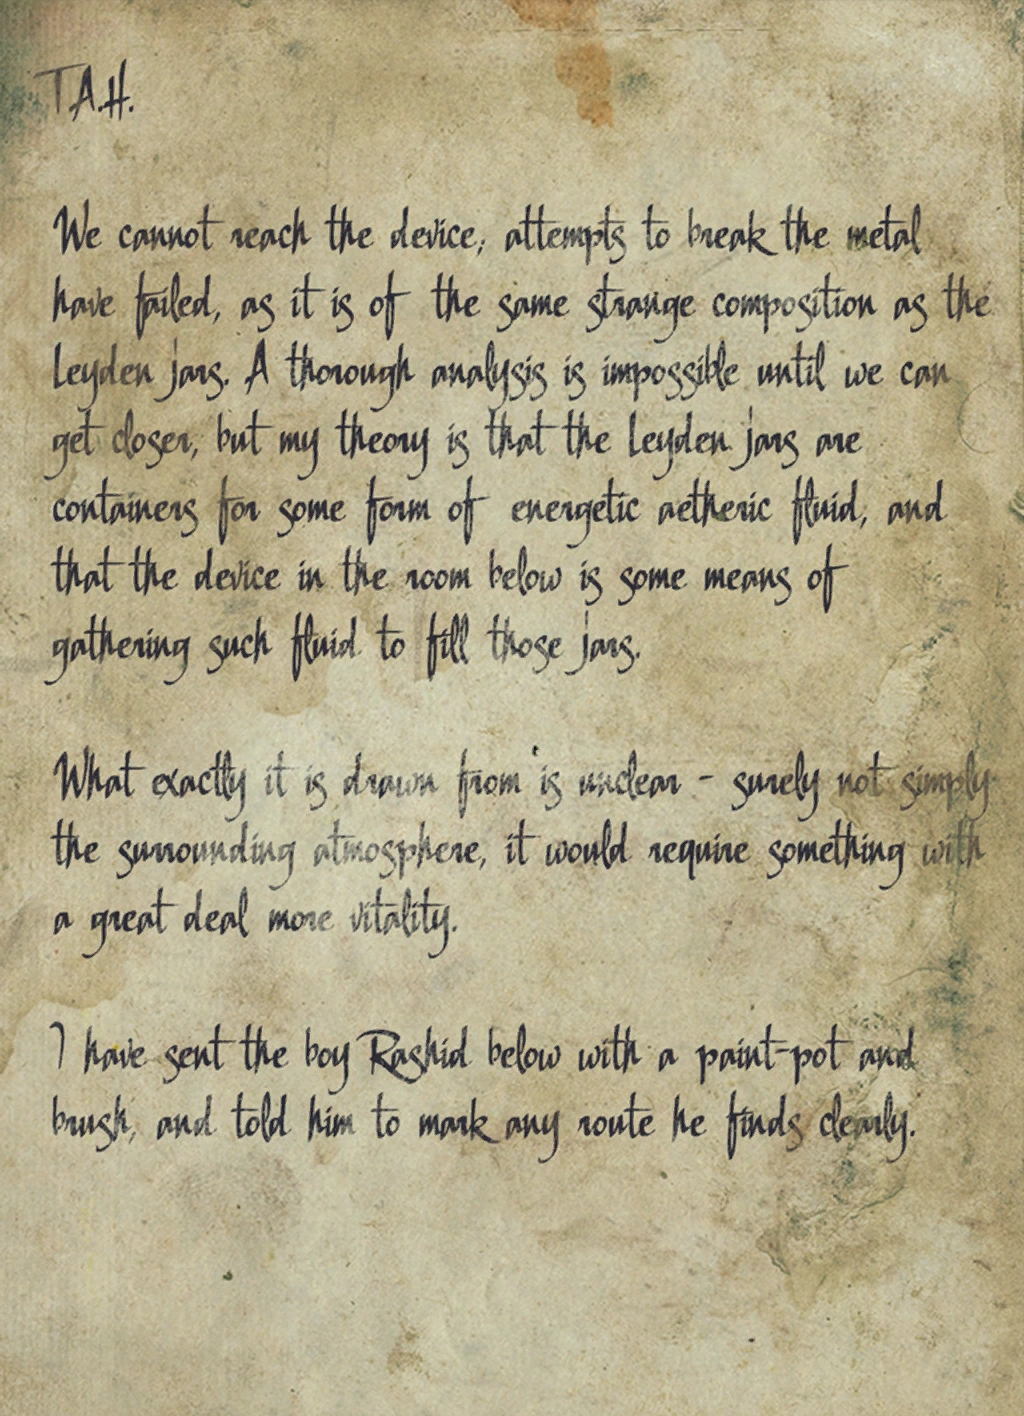 T.A.H.
We cannot reach the device; attempts to break the metal
have failed, as it is of the same strange composition as the
Leyden jars. A thorough analysis is impossible until we can
get closer, but my theory is that the Leyden jars are
containers for some form of energetic aetheric fluid, and
that the device in the room below is some means of
gathering such fluid to fill those jars.
What exactly it is drawn from is unclear - surely not simply
the surrounding atmosphere, it would require something with
a great deal more vitality.
I have sent the boy Rashid below with a paint-pot and
brush, and told him to mark any route he finds clearly.